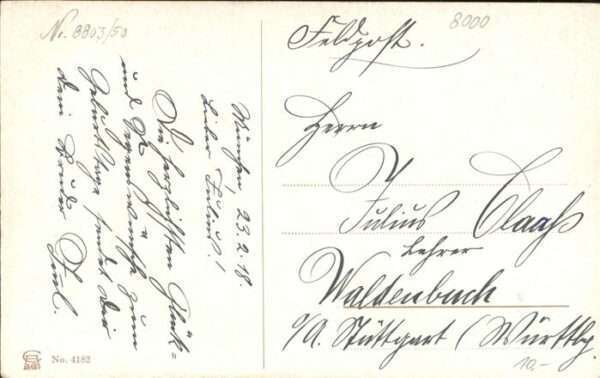 Nr. 8803/50
8000
Feldpost.
München, 23.2.18.
Lieber Julius!
Die herzlichsten Glück=
und Segenswünsche zum
Geburtstage sendet Dir
Dein Bruder
Herrn
Julius
Lehrer
Waldenbuch
o/A. Stuttgart (Württbg.
10.-
No. 4182